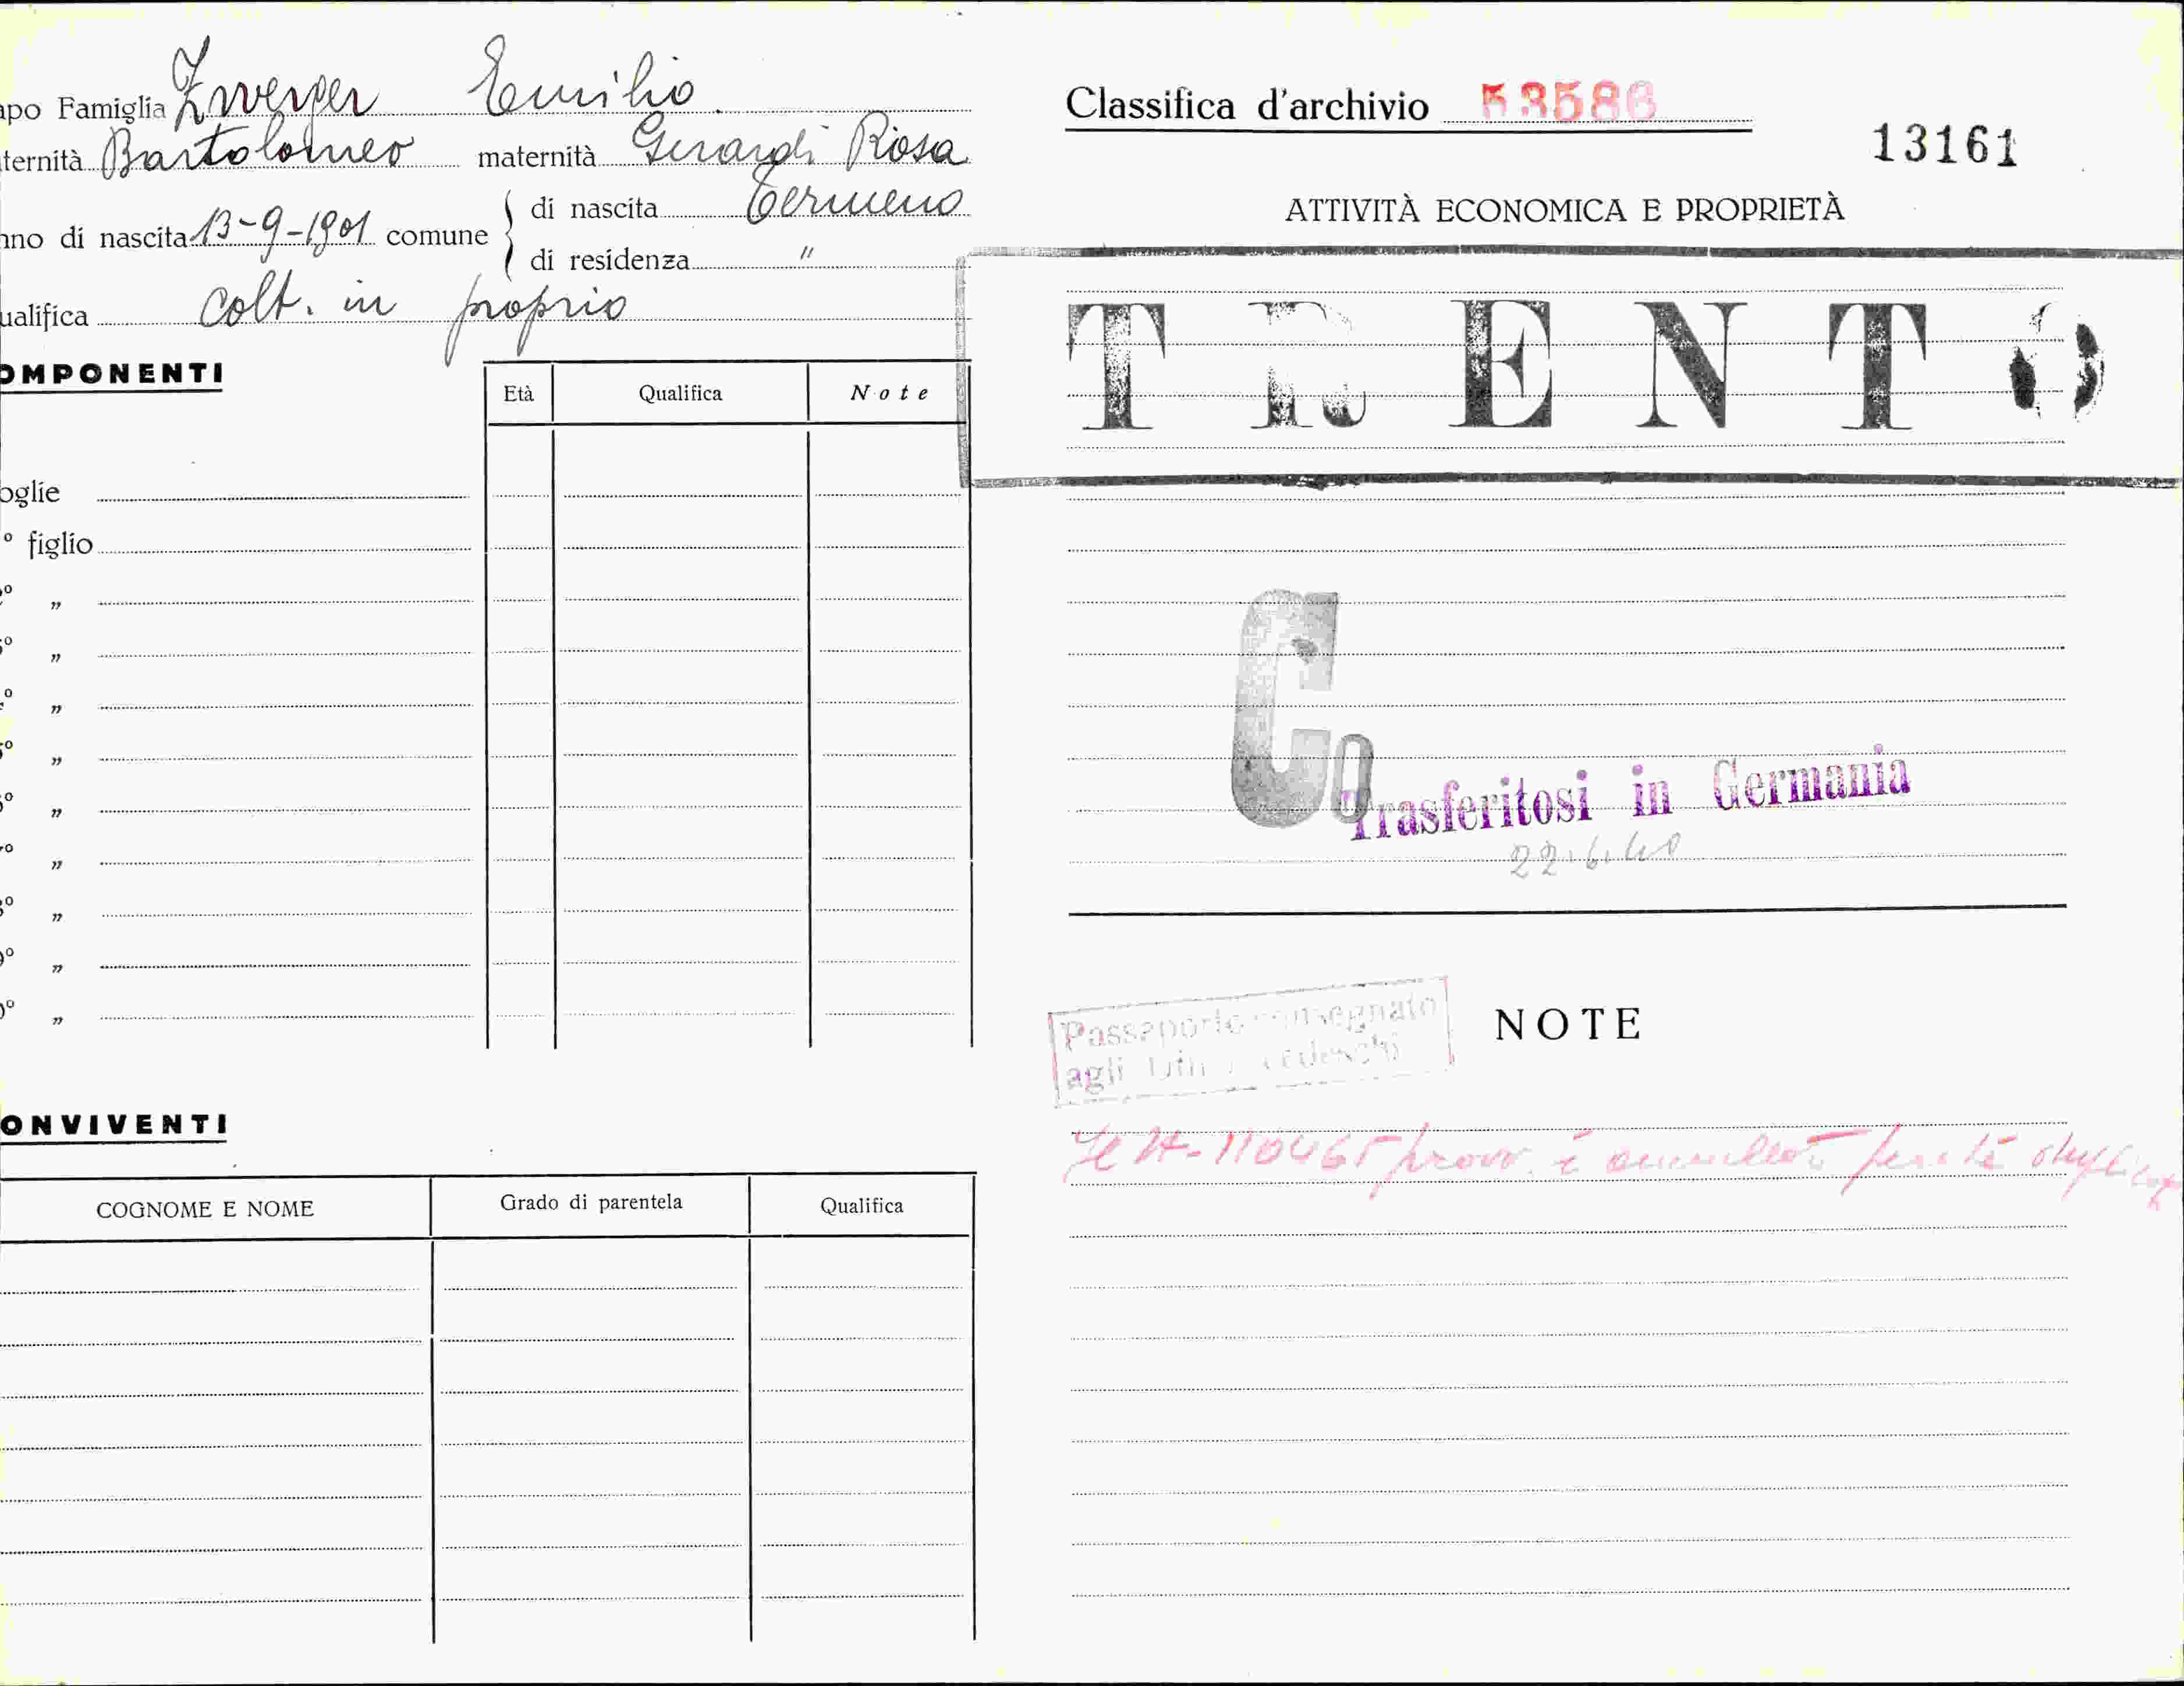 apo Famiglia Zwerger Emilio
ternità Bartolomeo maternità Gerardi Rosa
nno di nascita 13-9-1901 comune
di nascita Termeno
di residenza "
ualifica colt. in proprio
OMPONENTI
Età Qualifica Note
oglie
º figlio
º "
º "
º "
º "
º "
º "
º "
º "
º "
ONVIVENTI
COGNOME E NOME Grado di parentela Qualifica
Classifica d'archivio 53586
13161
ATTIVITÀ ECONOMICA E PROPRIETÀ
TRENTO
Co
Trasferitosi in Germania
22.6.40
NOTE
Passaporto consegnato
agli tedeschi
110465 provv. è annullato perchè